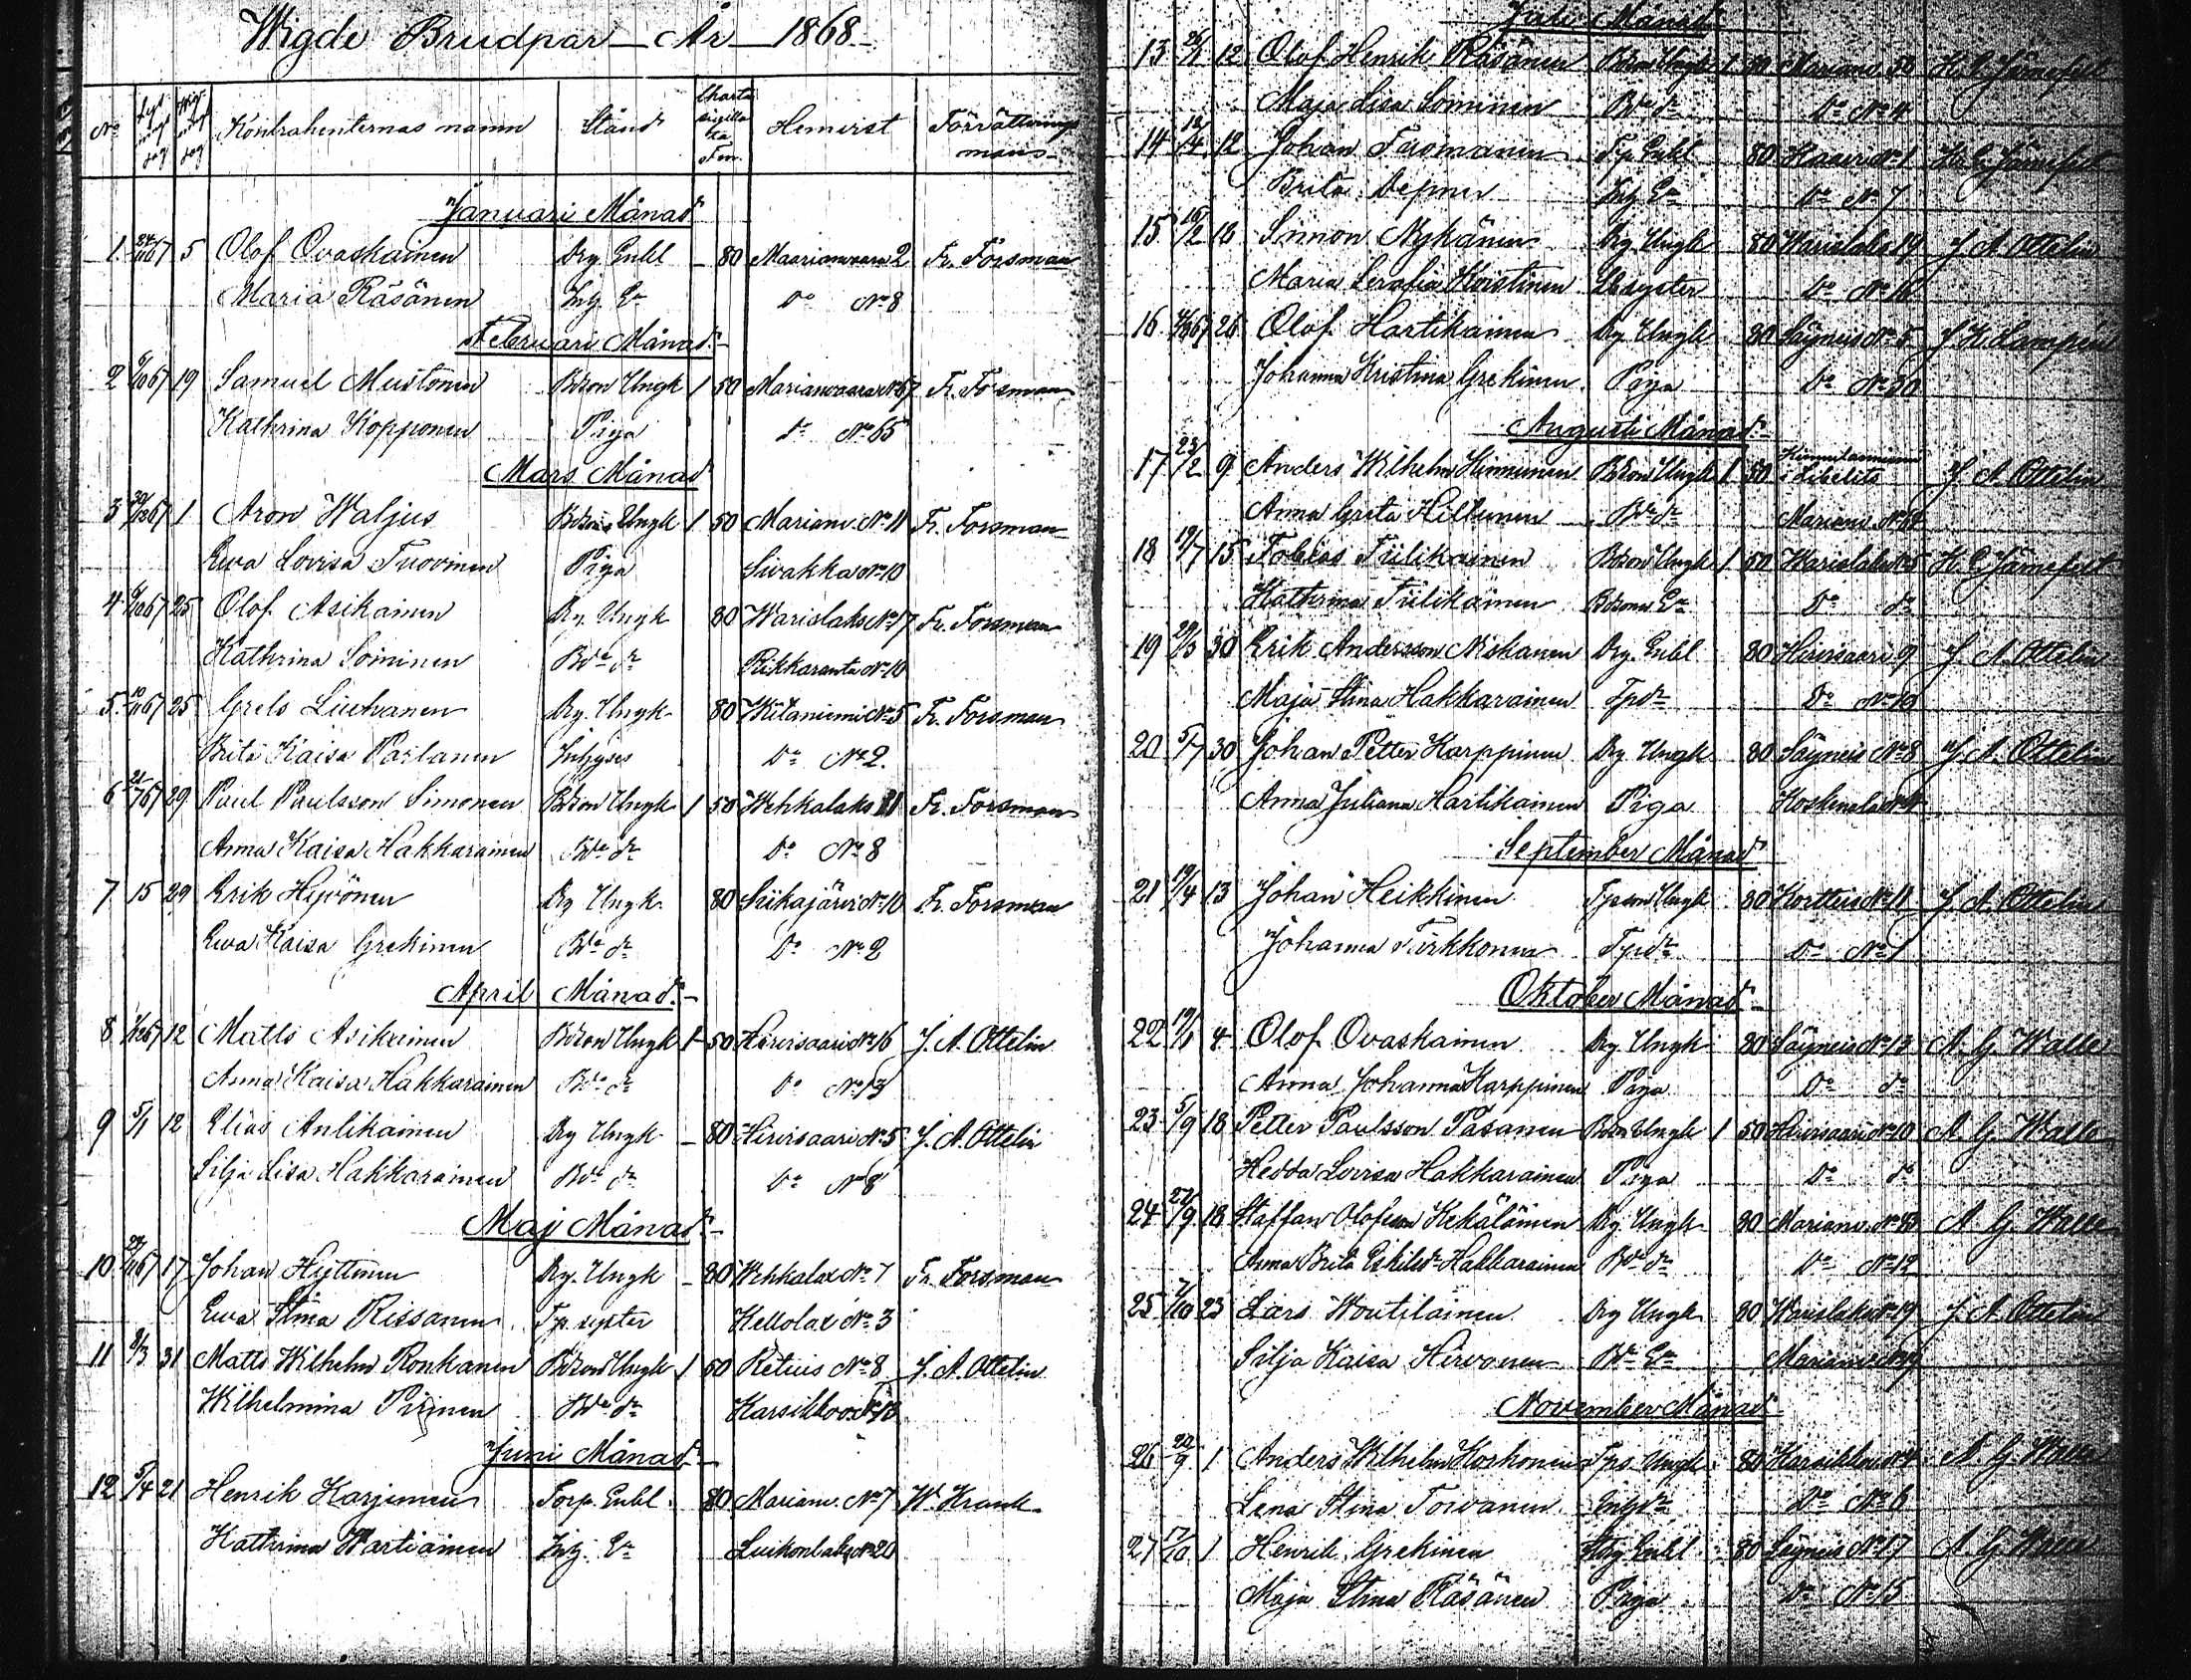 Wigde Brudpar År 1868
No Lysningsdag Wigningsdag Kontrahenternas namn Stånd Charta sigillata Fm. Hemvist Förrättnings man
Januari Månad
1 24/11 67 5 Olof Ovaskainen Drg Enkl 80 Maarianvaara 2 Fr. Forsman
Maria Räsänen Inh. Ea Do No 8
Februari Månad
2 6/10 67 19 Samuel Mustonen Bdson Ungk 1 50 Marianvaara No 67 Fr. Forsman
Kathrina Kopponen Piga do No 65
Mars Månad
3 30/12 67 1 Aron Waljus Bdson Ungk 1 50 Marianv. No 11 Fr. Forsman
Ewa Lovisa Tuovinen Piga Sivakka No 10
4 6/10 67 25 Olof Asikainen Drg. Ungk 80 Warislaks No 17 Fr. Forsman
Kathrina Soininen Bde dr Rikkaranta No 10
5 10/11 67 25 Grels Liutvanen Drg. Ungk 80 Witaniemi No 5 Fr. Forsman
Brita Kaisa Parlanen Do No 2.
6 21/7 67 29 Paul Paulsson Simonen Bdson Ungk 1 50 Wehkalaks 11 Fr. Forsman
Anna Kaisa Hakkarainen Bde dr Do No 8
7 15 29 Erik Hyvönen Drg Ungk 80 Siikajärvi No 10 Fr. Forsman
Ewa Kaisa Grekinen Bde dr Do No 2
April Månad
8 1/12 67 12 Matts Asikainen Bdson Ungk 1 50 Hirvisaari No 16 J. A. Ottelin
Anna Kaisa Hakkarainen Bde dr Do No 13
9 5/1 12 Elias Antikainen Drg Ungk 80 Hirvisaari No 5 J. A. Ottelin
Silja Lisa Hakkarainen Bde dr Do No 8
Maj Månad
10 24/11 67 17 Johan Hyttinen Drg. Ungk 80 Wehkalax No 7 Fr. Forsman
Ewa Stina Rissanen Tp. syster Kellolax No 3
11 8/3 31 Matts Wilhelm Ronkanen Bdson Ungk 1 50 Retuis No 8 J. A. Ottelin
Wilhelmina Pirinen Bde dr Karsikkovaa No 13
Juni Månad
12 5/4 21 Henrik Karjunen Torp. Enkl. 80 Marianv. No 7 W. Krank
Kathrina Wartiainen Inh. Ea Luikonlaks No 20
Juli Månad
13 26/1 12 Olof Henrik Räsänen Bdson Ungk 1 50 Marianv. 50 H. G. Järnefelt
Maja Lisa Soininen Bde dr Do No 4
14 12/4 12 Johan Tuomainen Tp. Enkl. 80 No 1 H. G. Järnefelt
Brita Inh Ea Do No 7
15 16/2 18 Simon Nykänen Drg. Ungk 80 Warislaks 19 J. A. Ottelin
Maria Serafia Koistinen Do No 16
16 67 26 Olof Hartikainen Drg. Ungk 80 Säyneis No 5 J. H. Lampen
Johanna Kristina Grekinen Piga Do No 30
Augusti Månad
17 23/2 9 Anders Wilhelm Hinnunen Bdson Ungk 1 50 i Libelits J. A. Ottelin
Anna Greta Hiltunen Bde dr Marianv. No 64
18 19/7 15 Tobias Tiilikainen Bdson Ungk 1 50 Warislaks 25 H. G. Järnefelt
Kathrina Tiilikainen Bdsons Ea Do do
19 29/3 30 Erik Andersson Niskanen Drg. Enkl 80 Hirvisaari 9 J. A. Ottelin
Maja Stina Hakkarainen Tpdr Do No 10
20 5/7 30 Johan Petter Karppinen Drg Ungk 80 Säyneis No 8 J. A. Ottelin
Anna Juliana Hartikainen Piga Koskenala No 4
September Månad
21 19/4 13 Johan Heikkinen Tpson Ungk 80 Kortteis No 11 J. A. Ottelin
Johanna Turkkonen Tpdr Do No 1
Oktober Månad
22 19/1 4 Olof Ovaskainen Drg. Ungk 80 Säyneis No 13 A. G. Walle
Anna Johanna Karppinen Piga Do do
23 5/9 18 Petter Paulsson Pasanen Bdson Ungk 1 50 Hirvisaari No 10 A. G. Walle
Hedda Lovisa Hakkarainen Piga Do do
24 27/9 18 Staffan Olofsson Kekäläinen Drg. Ungk 80 Marianv. No 43 A. G. Walle
Anna Brita Eskilsdr Hakkarainen Bde dr Do No 12
25 7/10 23 Lars Woutilainen Drg Ungk 80 Warislaks No 19 J. A. Ottelin
Silja Kaisa Hirvonen Bde Ea Marianv.
November Månad
26 20/9 1 Anders Wilhelm Korhonen Tps. Ungk 80 Karsikko No 4 A. G. Walle
Lena Stina Toivanen Inhdr Do No 6
27 17/10 1 Henrik Grekinen Drg Enkl 80 Säyneis No 17 A. G. Walle
Maja Stina Räsänen Piga Do No 15